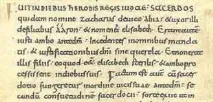 FUIT IN DIEBUS HERODIS REGIS IUDAEAE SACERDOS
quidam nomine zacharias de uice abia & uxor illi
de filiabus aaron & nomen elisabeth. Erant autem
iusti ambo ante dm. Incedentes in omnibus manda
& iustificationibus dni sine querela. Et non erat
illis filius eo quod esset elisabeth sterilis & ambo
in diebus suis. Factum est autem cum sacer
dotio fungeretur in ordine uicis suae ante dm. se
cundum consuetudinem sacerdotii. sorte exiit